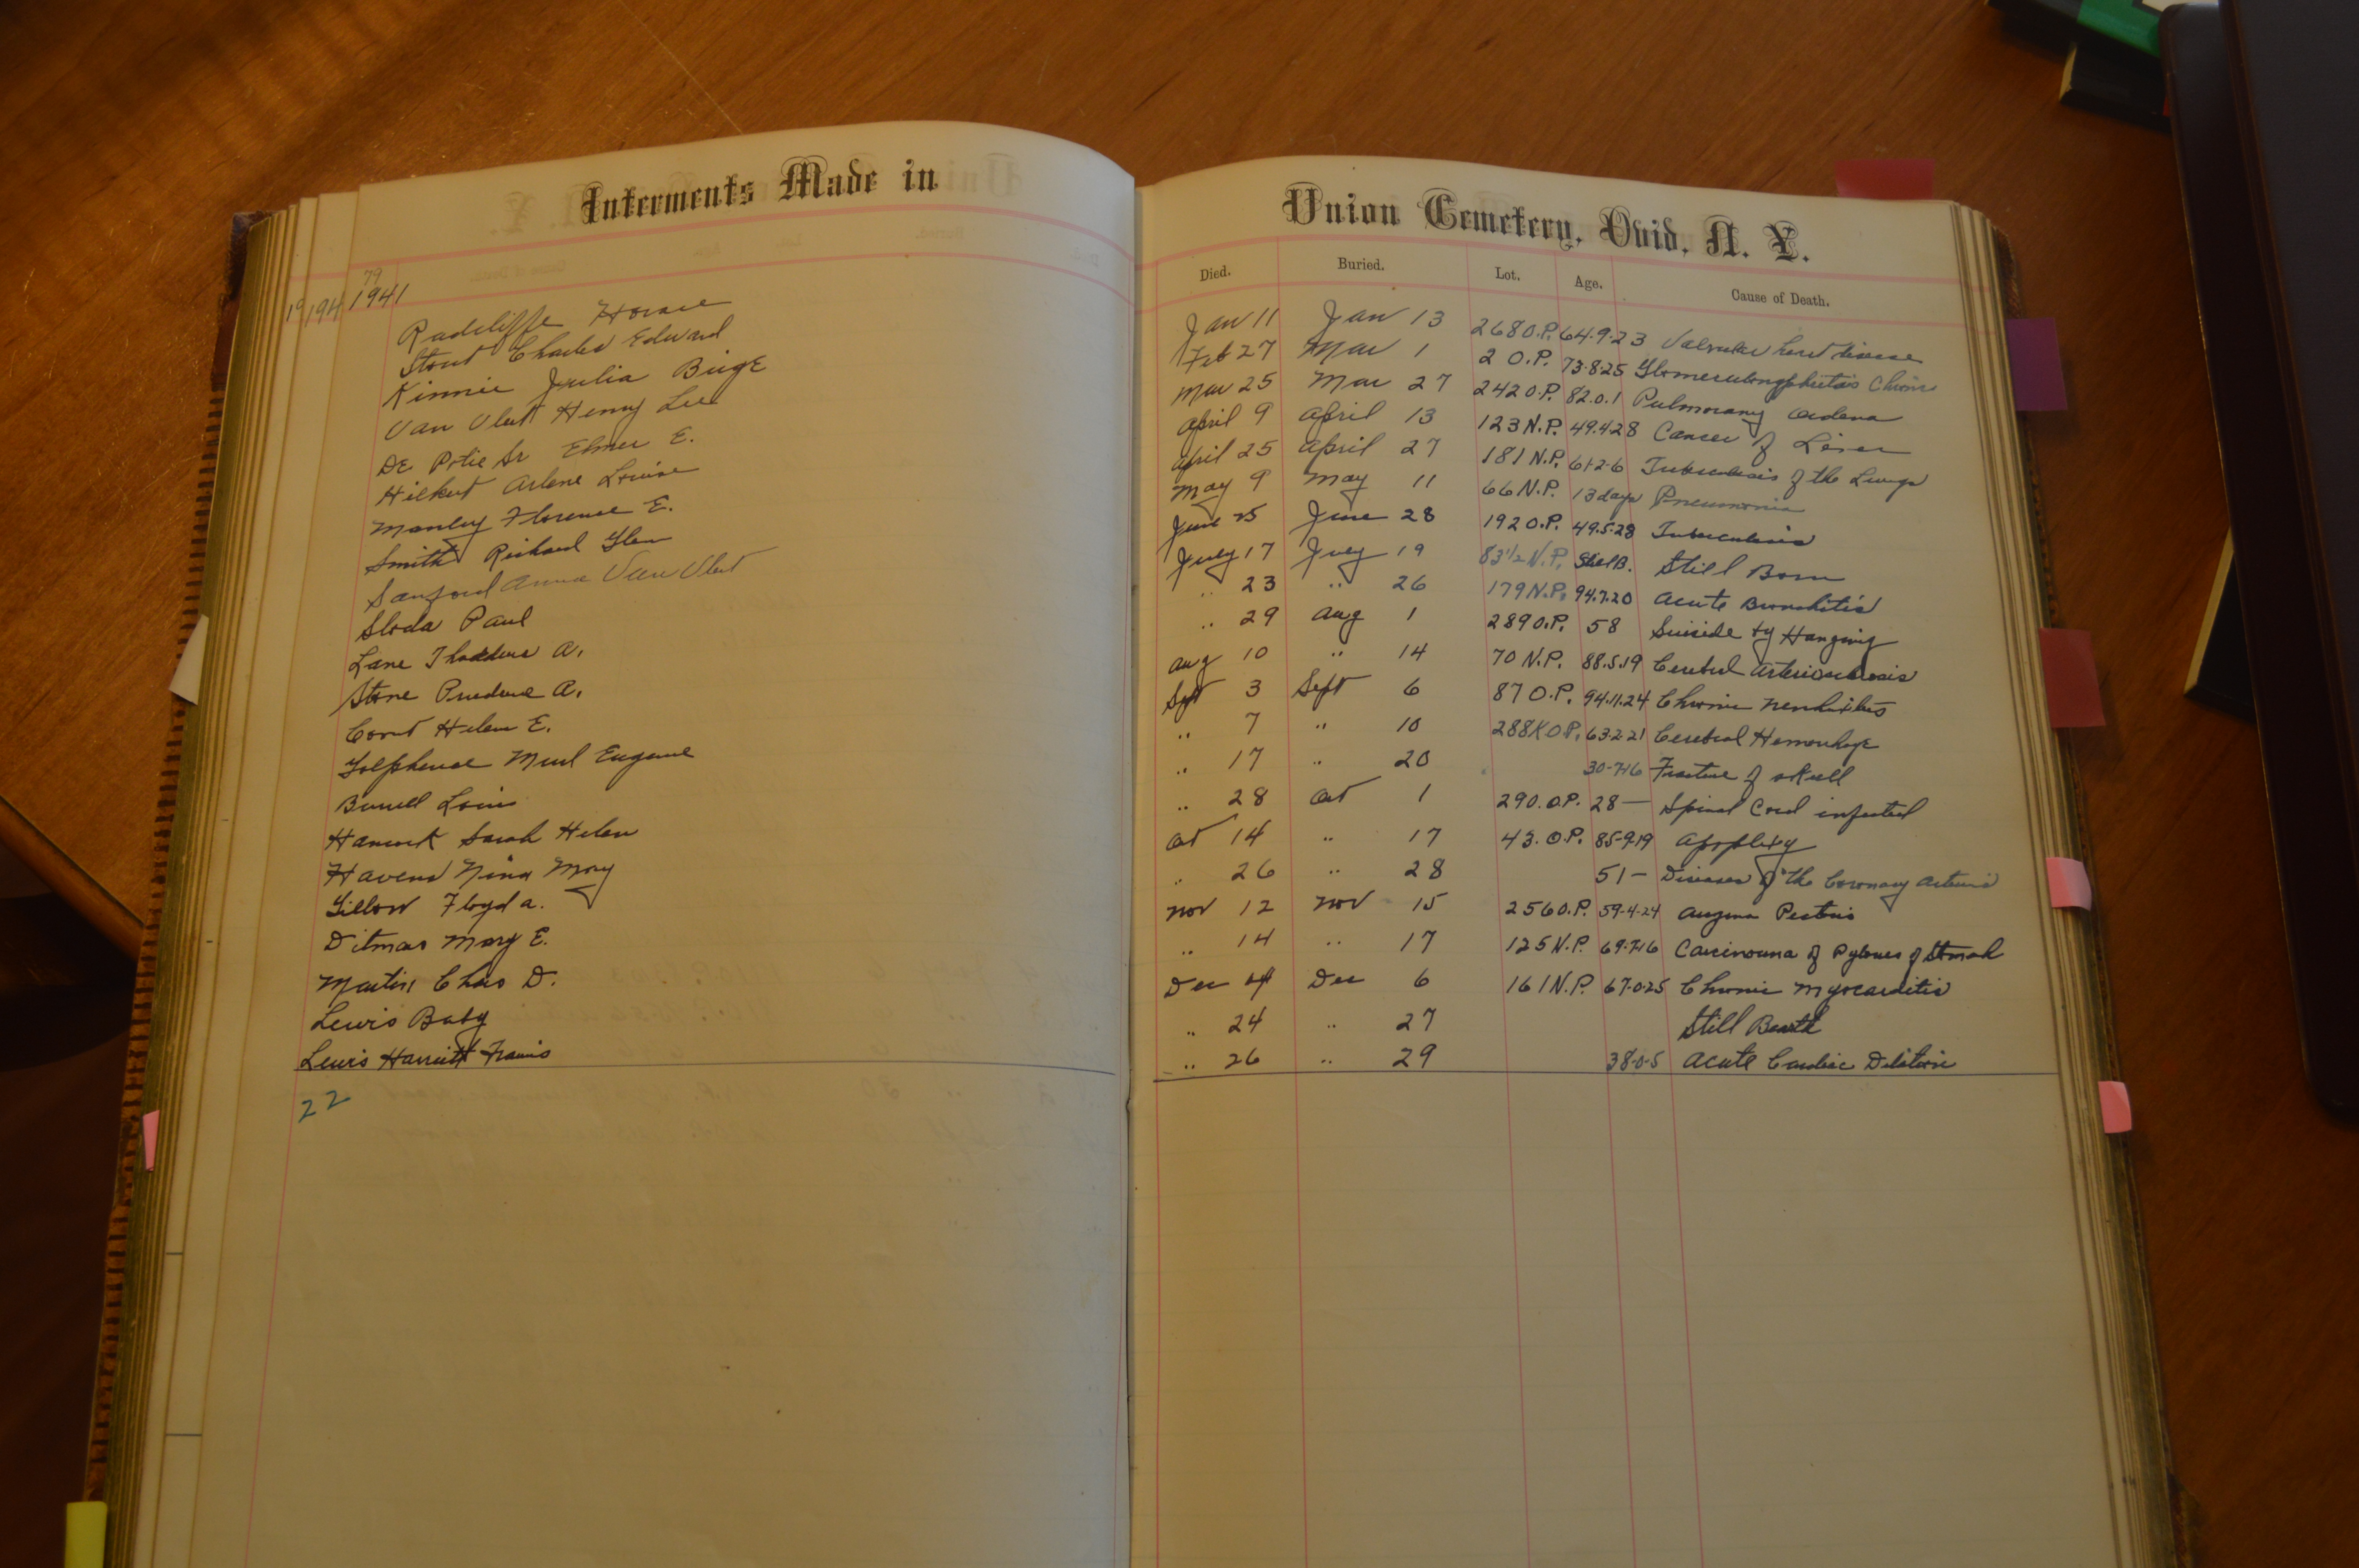 Interments Made in
Union Cemetery, Ovid, N. Y.
Died. Buried. Lot. Age. Cause of Death.
79
19 194 1941
Radcliffe Horace Jan 11 Jan 13 268 O.P. 64-9-23 Valvular heart disease
Stout Charles Edward Feb 27 Mar 1 2 O.P. 73-8-25 Chronic
Kinnie Julia Birge Mar 25 Mar 27 242 O.P. 82.0.1 Pulmonary
Van Vleet Henry Lee April 9 April 13 123 N.P. 49.4.28 Cancer of Liver
De Elmer E. April 25 April 27 181 N.P. 61-2-6 Tuberculosis of the Lungs
Arlene Louise May 9 May 11 66 N.P. 13 days Pneumonia
Manley Florence E. June 25 June 28 192 O.P. 49.5.28 Tuberculosis
Smith Richard Glen July 17 July 19 83 1/2 N.P. Still B. Still Born
Sanford Anna Van Vleet " 23 " 26 179 N.P. 94.7.20 Acute Bronchitis
Sloda Paul " 29 Aug 1 289 O.P. 58 Suicide by Hanging
Lane A. Aug 10 " 14 70 N.P. 88.5.19 Arteriosclerosis
Stone Prudence A. Sept 3 Sept 6 87 O.P. 94.11.24 Chronic
Covert Helen E. " 7 " 10 288 O.P. 63-2-21 Cerebral Hemorrhage
Eugene " 17 " 20 30-7-16 Fracture of skull
Louis " 28 Oct 1 290. O.P. 28 — Spinal Cord infected
Hancock Sarah Helen Oct 14 " 17 43. O.P. 85-9-19 Apoplexy
Havens Nina May " 26 " 28 51 — Diseases of the Coronary Arteries
Floyd A. Nov 12 Nov 15 256 O.P. 59-4-24 Angina Pectoris
Ditmas Mary E. " 14 " 17 125 N.P. 69-7-16 Carcinoma of of
Martin Chas D. Dec 4 Dec 6 161 N.P. 67-0-25 Chronic Myocarditis
Lewis Baby " 24 " 27 Still
Lewis Harriett " 26 " 29 38-0-5 Acute Cardiac
22